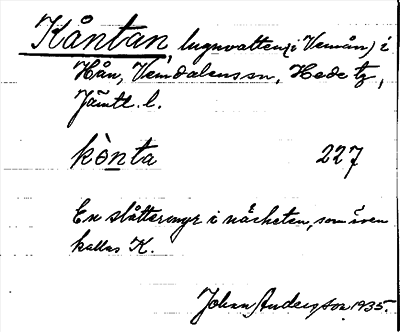 Kåntan, lugnvatten (i Vemån) i
Hån, Vemdalens sn, Hede tg,
Jämtl. l.
kò̱nta 227
En slåttermyr i närheten, som även
kallas K.
Johan Andersson 1935.